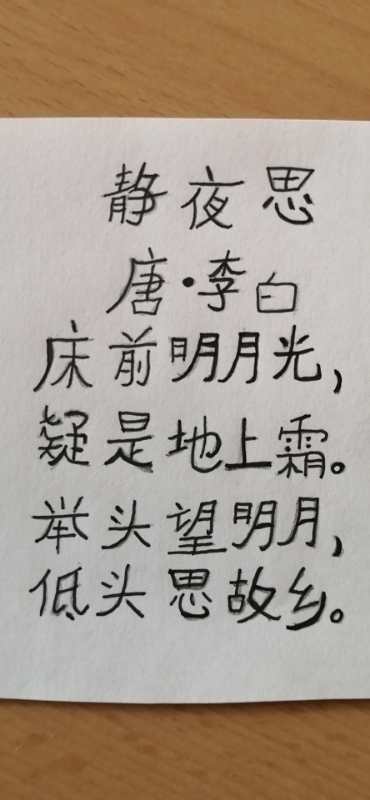 静夜思
唐·李白
床前明月光,
疑是地上霜。
举头望明月,
低头思故乡。